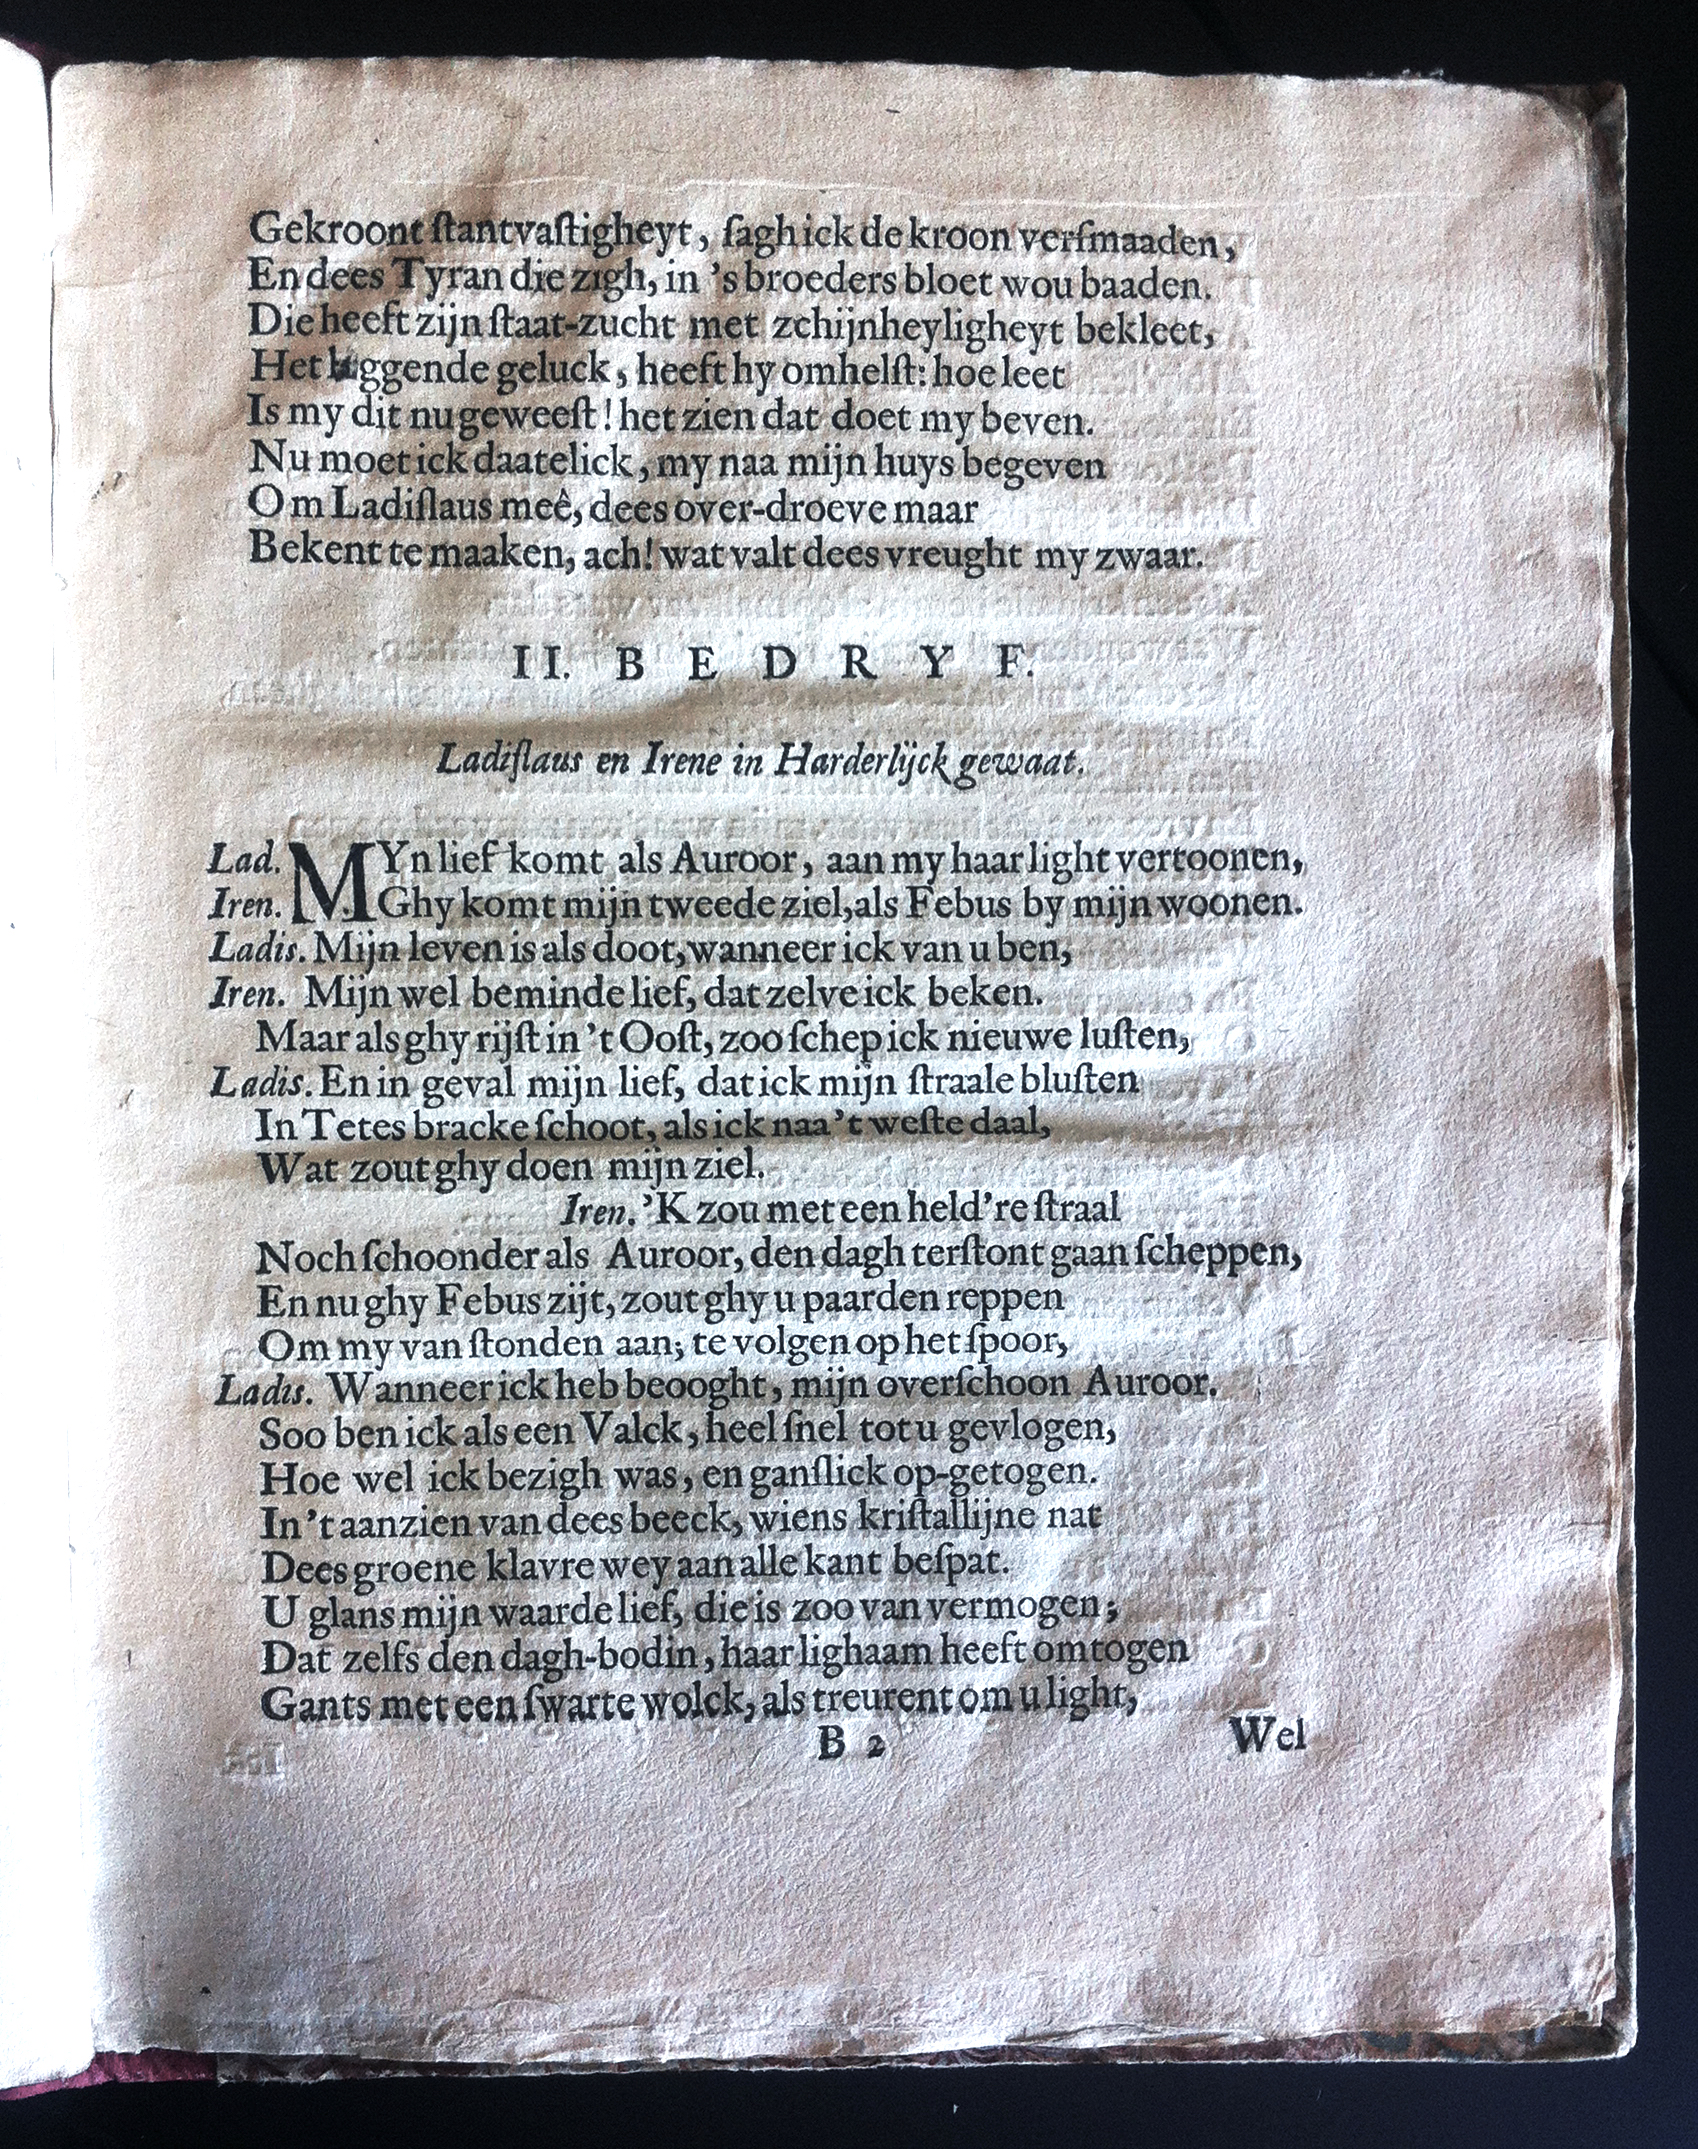 Gekroont ſtantvaſtigheyt, ſagh ick de kroon verſmaaden,
En dees Tyran die zigh, in 's broeders bloet wou baaden.
Die heeft zijn ſtaat-zucht met zchijnheyligheyt bekleet,
Het geluck, heeft hy omhelſt: hoe leet
Is my dit nu geweeſt! het zien dat doet my beven.
Nu moet ick daatelick, my naa mijn huys begeven
Om Ladiſlaus meê, dees over-droeve maar
Bekent te maaken, ach! wat valt dees vreught my zwaar.
II. BEDRYF.
Ladiſlaus en Irene in Harderlijck gewaat.
Lad. MYn lief komt als Auroor, aan my haar light vertoonen,
Iren. Ghy komt mijn tweede ziel, als Febus by mijn woonen.
Ladis. Mijn leven is als doot, wanneer ick van u ben,
Iren. Mijn wel beminde lief, dat zelve ick beken.
Maar als ghy rijſt in 't Ooſt, zoo ſchep ick nieuwe luſten,
Ladis. En in geval mijn lief, dat ick mijn ſtraale bluſten
In Tetes bracke ſchoot, als ick naa 't weſte daal,
Wat zout ghy doen mijn ziel.
Iren. 'K zou met een held're ſtraal
Noch ſchoonder als Auroor, den dagh terſtont gaan ſcheppen,
En nu ghy Febus zijt, zout ghy u paarden reppen
Om my van ſtonden aan; te volgen op het ſpoor,
Ladis. Wanneer ick heb beooght, mijn overſchoon Auroor.
Soo ben ick als een Valck, heel ſnel tot u gevlogen,
Hoe wel ick bezigh was, en ganſlick op-getogen.
In 't aanzien van dees beeck, wiens kriſtallijne nat
Dees groene klavre wey aan alle kant beſpat.
U glans mijn waarde lief, die is zoo van vermogen;
Dat zelfs den dagh-bodin, haar lighaam heeft omtogen
Gants met een ſwarte wolck, als treurent om u light,
B 2 Wel